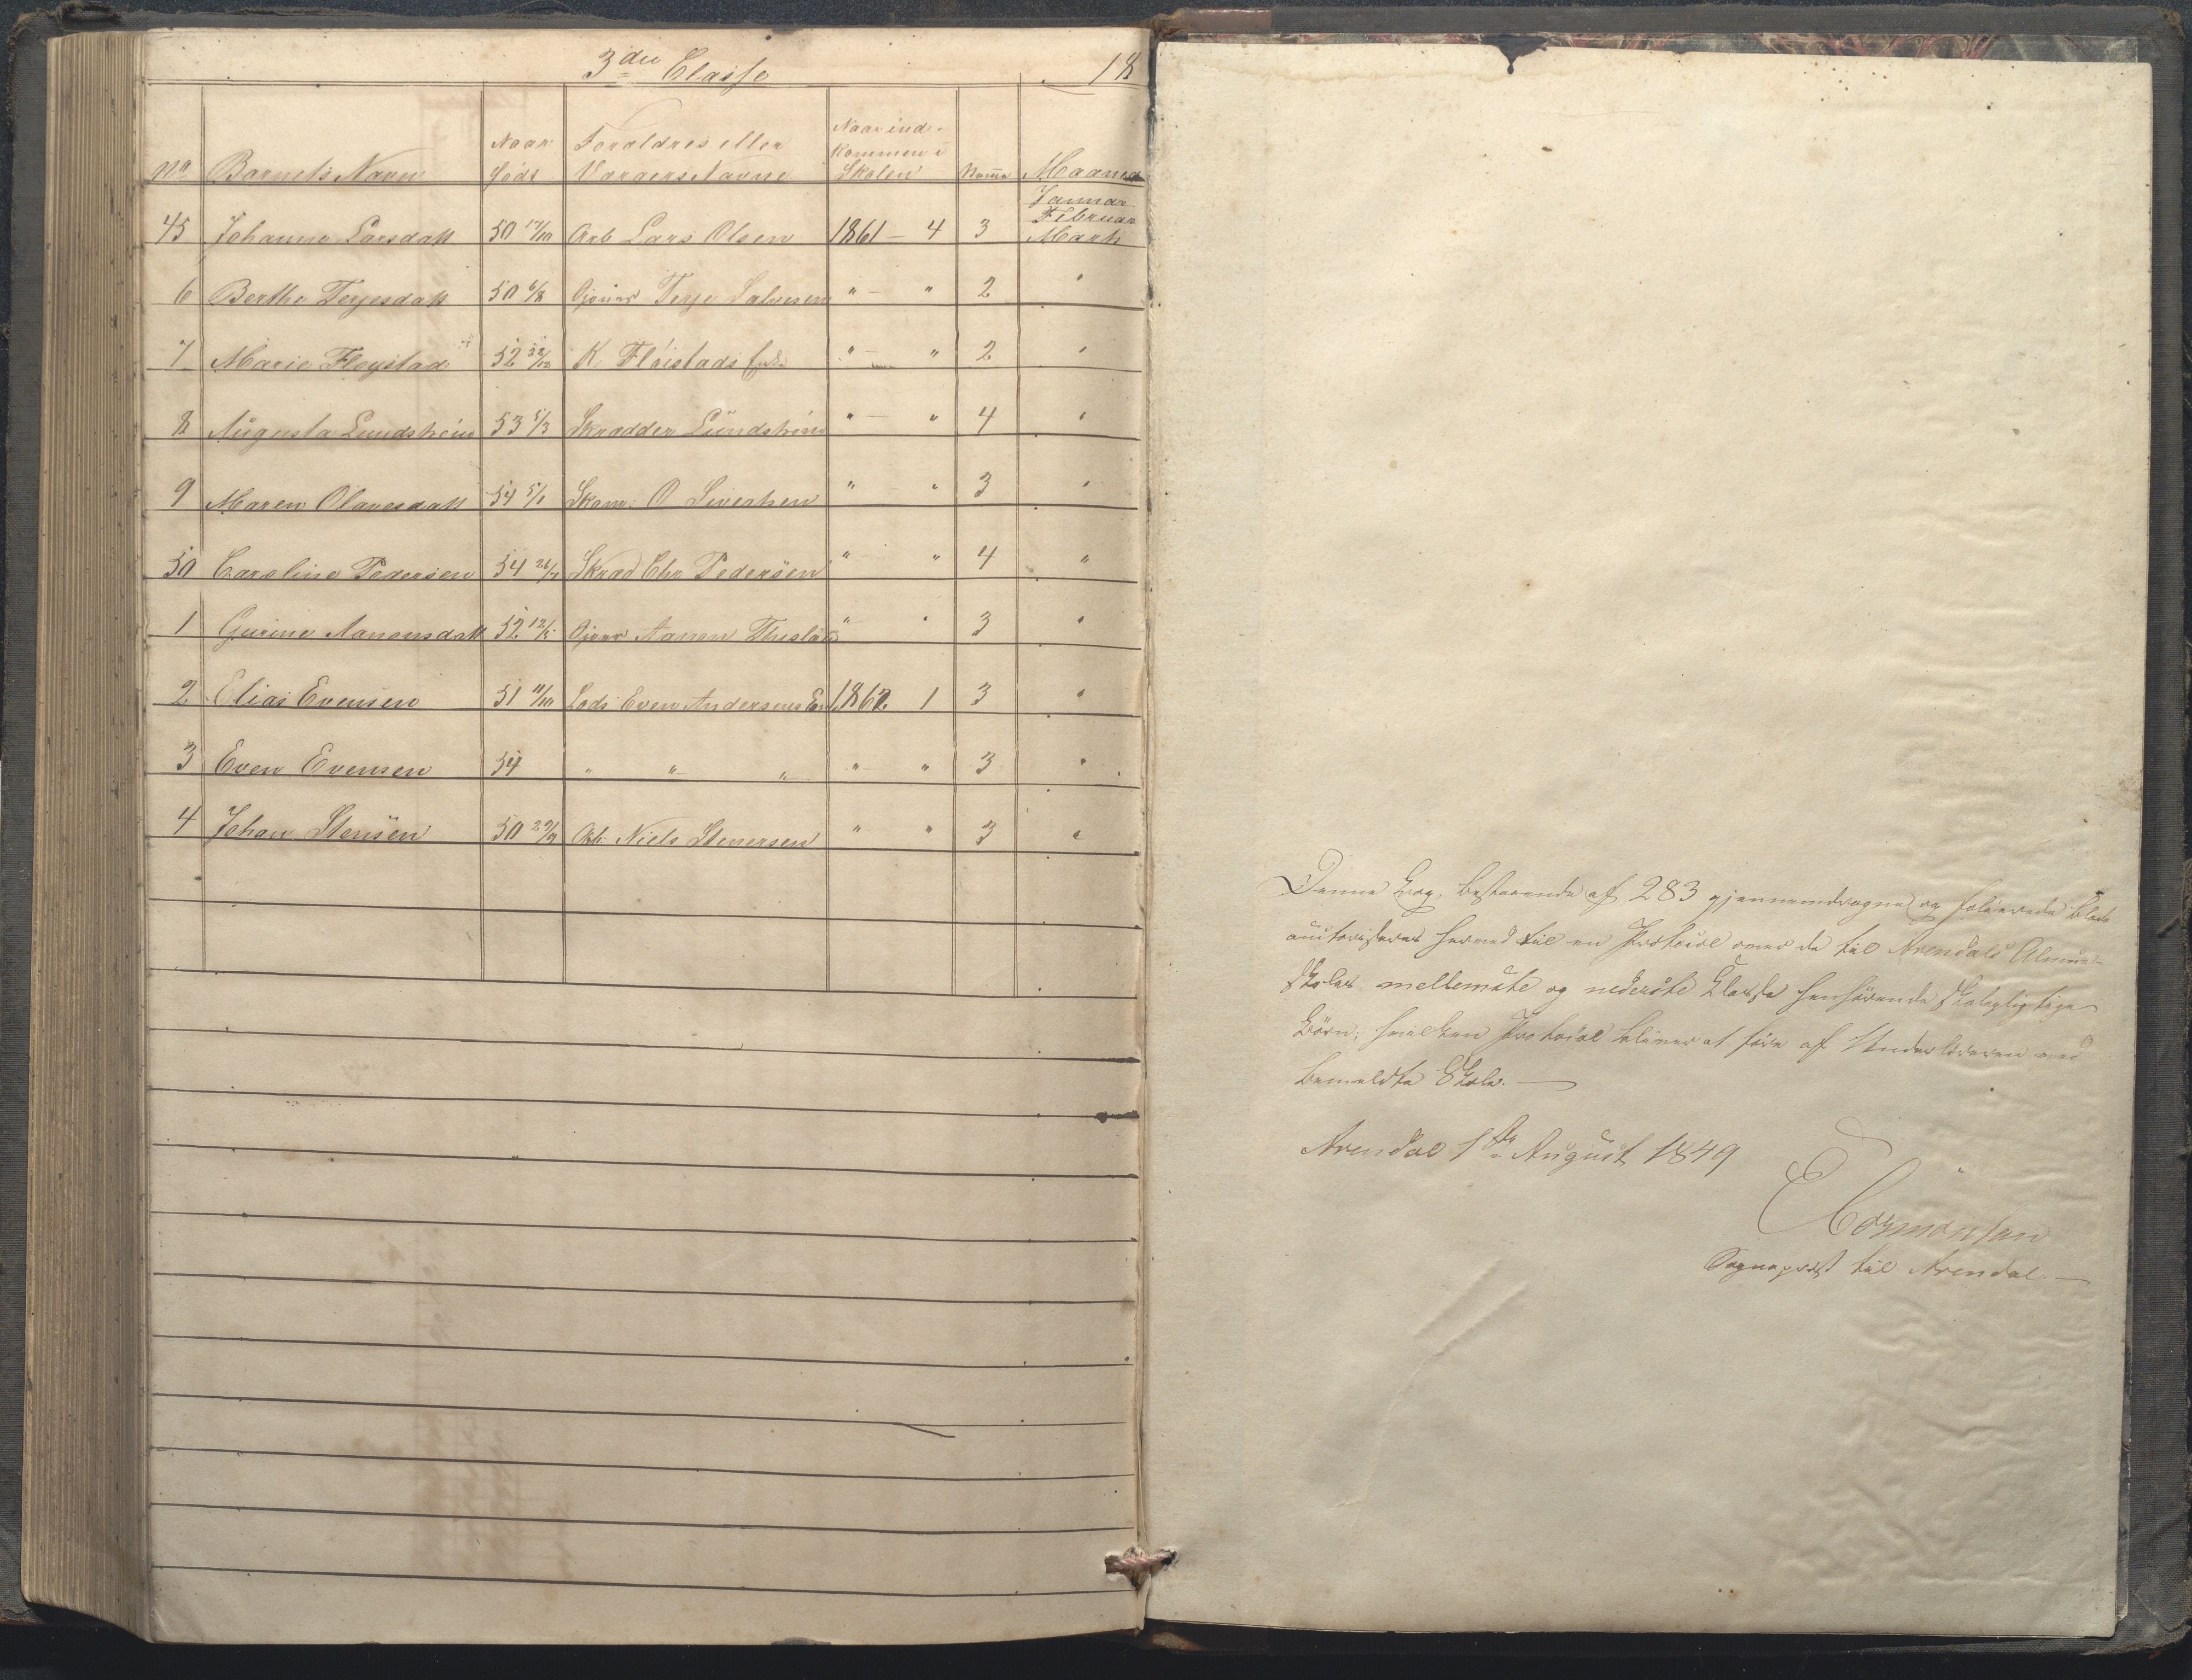 3die Classe 18
No Barnets Navn Naar født Forældres eller Værgers Navne Naar indkommen i Skolen Maaned
Januar
Februar
45 Johanne Larsdatt 50 17/10 Arb Lars Olsen 1861 – 4 3 Marts
6 Berthe Terjesdatt 50 6/8 Terje Salvesen " – " 2 "
7 Marie Floystad 52 K. Flöistads Enke " – " 2 "
8 Augusta Lundström 53 5/3 Skrædder Lundström " – " 4 "
9 Maren Olavesdatt 54 5/1 Skom. O Sivertsen " " 3 "
50 Caroline Pedersen 54 26/7 Skræd Chr Pedersen " – " 4 "
1 Gurine Aanensdatt 52 12/5 Aanen " " 3 "
2 Elias Evensen 51 11/10 Lods Even Andersens En 1862 1 3 "
3 Even Evensen 54 " " " " " 3 "
4 Johan Stensen 50 29/9 Arb. Niels Stenersen " " 3 "
Denne Bog, bestaaende af 283 gjennemdragne og folierede Blade
autoriseres herved til en Protocol over de til Arendals Almue-
Skoles mellemste og nederste Classe henhörende skolepligtige
Börn; hvilken Protocol bliver at före af Underlæreren ved
bemeldte Skole. —
Arendal 1ste August 1849
Sognepræst til Arendal. —